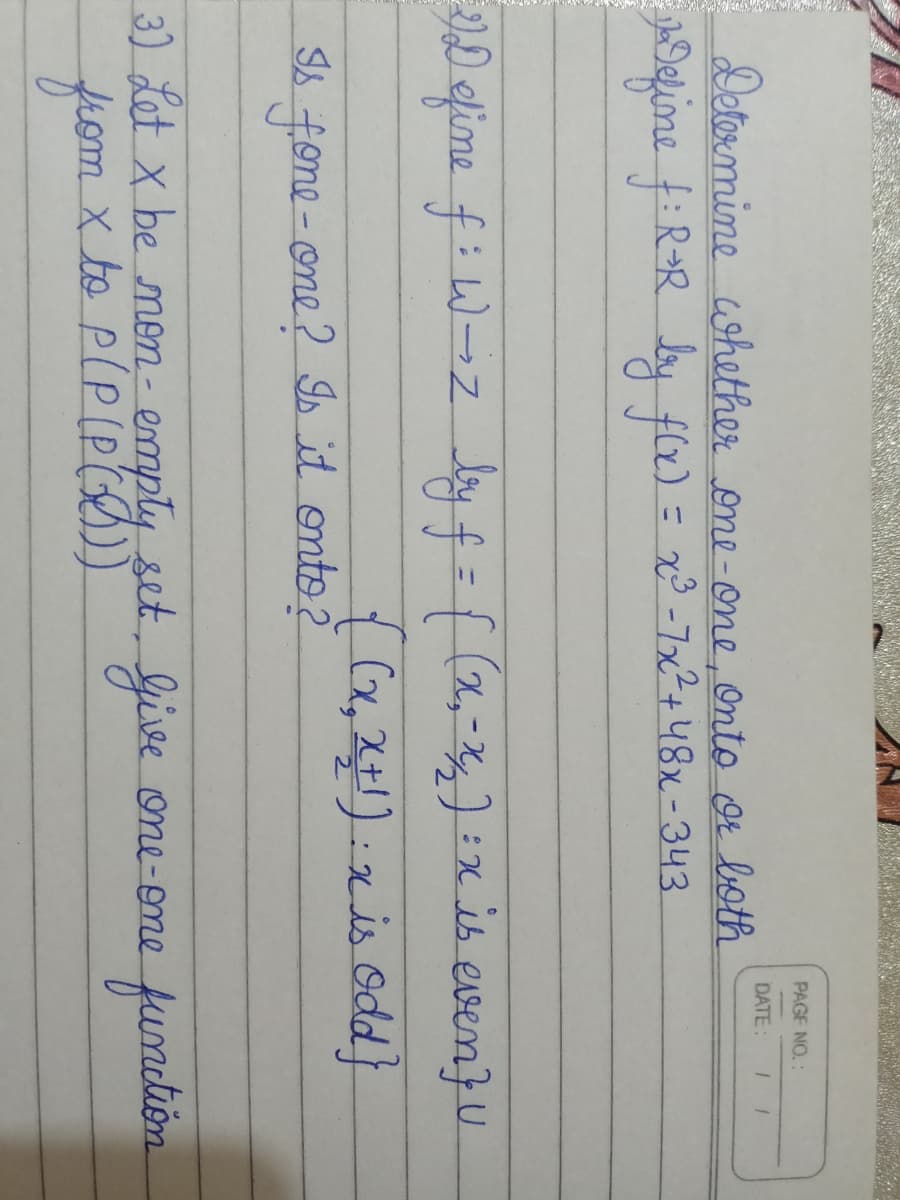 PAGE NO.:
DATE: / /
Determine whether one-one, onto or both
1) Define f: R→R by f(x) = x³ - 7x² + 48x - 343
2) Define f: W → Z by f = { (x, -x/2) : x is even} U
{ (x, x+1/2) : x is odd}
Is f one-one? Is it onto?
3) Let X be non-empty set. Give one-one function
from X to P(P(P(X)))